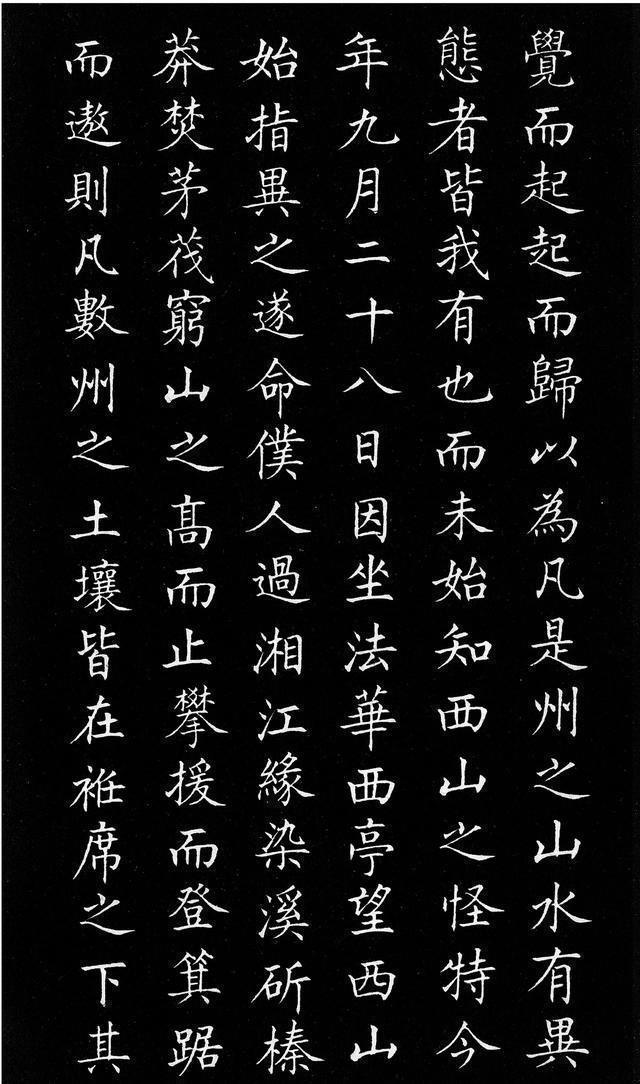 覺而起起而歸以為凡是州之山水有異
態者皆我有也而未始知西山之怪特今
年九月二十八日因坐法華西亭望西山
始指異之遂命僕人過湘江緣染溪斫榛
莽焚茅茷窮山之髙而止攀援而登箕踞
而遨則凡數州之土壤皆在袵席之下其